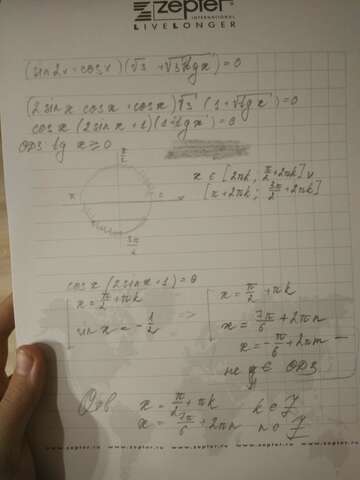 zepter
INTERNATIONAL
LIVE LONGER
(sin2x + cosx)(√3 + √3tgx) = 0
(2sinx cosx + cosx)√3 (1 + √tgx) = 0
cosx (2sinx + 1)(1 + √tgx) = 0
ОДЗ tg x ≥ 0
π/2
x ∈ [2πk; π/2 + 2πk] ∪
π
[π + 2πk; 3π/2 + 2πk]
3π/2
cosx (2sinx + 1) = 0
x = π/2 + πk
sin x = -1/2
=>
x = π/2 + πk
x = 7π/6 + 2πn
x = -π/6 + 2πm —
не уд ∈ ОДЗ
Отв x = π/2 + πk k ∈ Z
x = 7π/6 + 2πn n ∈ Z
www.zepter.ru www.zepter.ru www.zepter.ru www.zepter.ru